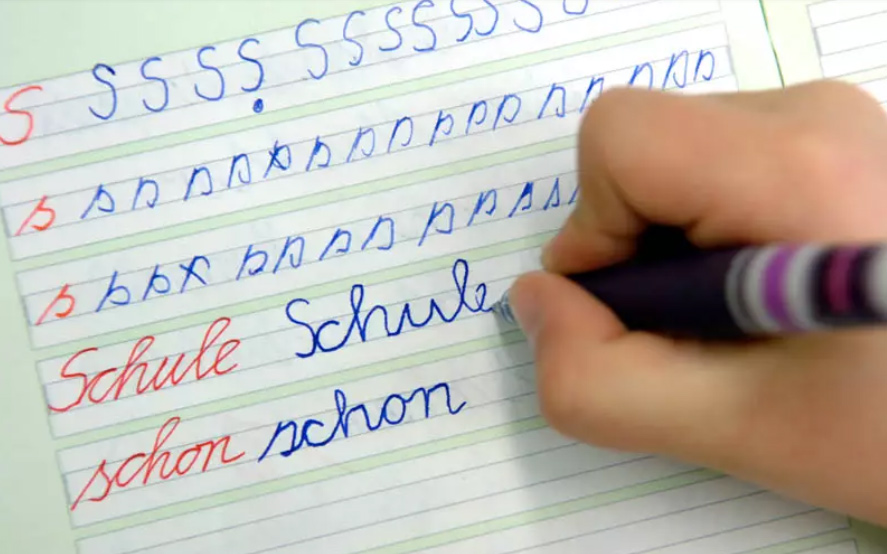 S S S S S S S S S S S S
s s s s s s s s s s s s s s s s s s
s s s s s s s s s s s s s
Schule Schule
schon schon